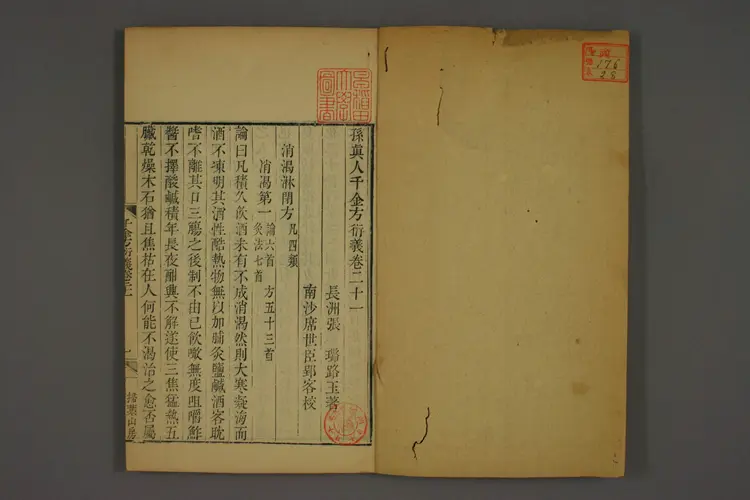 孫真人千金方衍義卷二十一
長洲張 璐路玉著
南沙席世臣郢客校
消渴淋閉方 凡四類
消渴第一 論六首 方五十三首
灸法七首
論曰凡積久飲酒未有不成消渴然則大寒凝海而
酒不凍明其酒性酷熱物無以加脯炙鹽鹹酒客耽
嗜不離其口三觴之後制不由己飲噉無度咀嚼鮓
醬不擇酸鹹積年長夜酣興不解遂使三焦猛熱五
臟乾燥木石猶且焦枯在人何能不渴治之愈否屬
千金方衍義卷二十一
一
掃葉山房
早稲田大學圖書
176
28